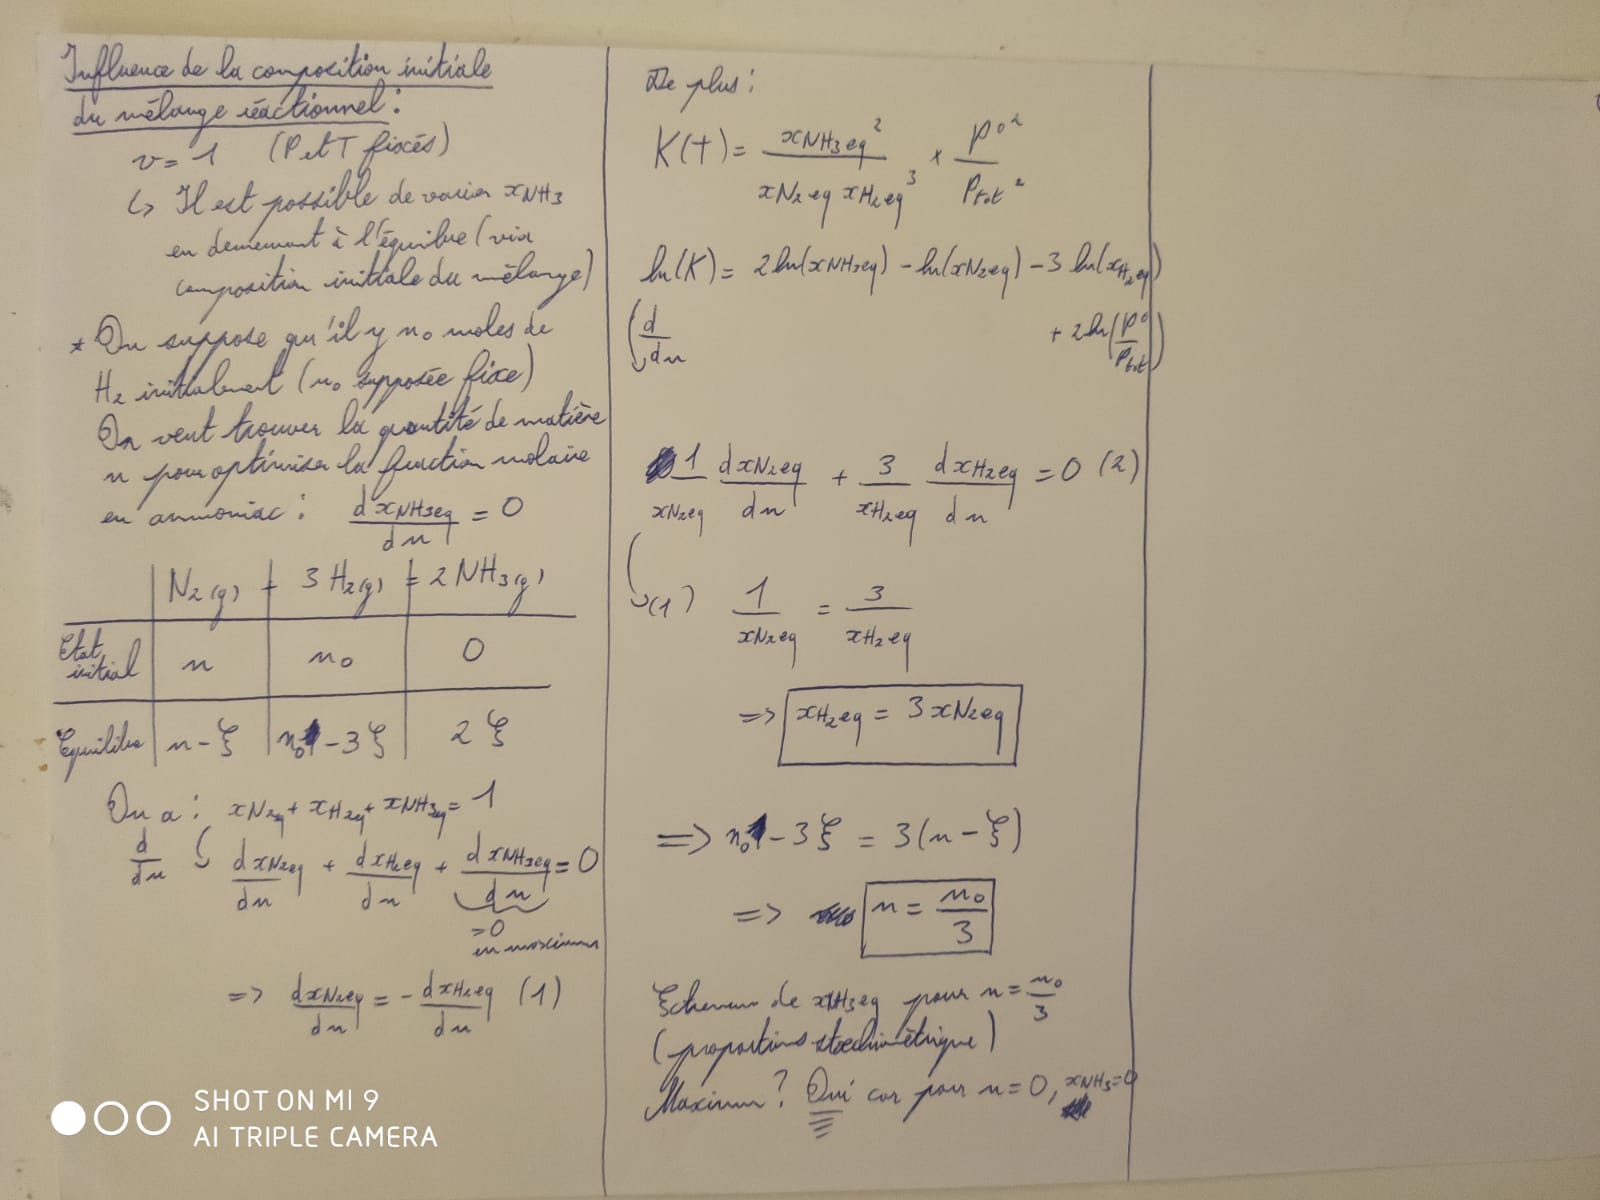 Influence de la composition initiale
du mélange réactionnel :
v = 1 (P et T fixés)
↳ Il est possible de varier xNH3
en demeurant à l'équilibre (via
composition initiale du mélange)
* On suppose qu'il y n0 moles de
H2 initialement (n0 supposée fixe)
On veut trouver la quantité de matière
n pour optimiser la fraction molaire
en ammoniac : dxNH3eq/dn = 0
N2(g) + 3 H2(g) = 2 NH3(g)
Etat initial | n | n0 | 0
Equilibre | n - ξ | n0 - 3ξ | 2ξ
On a : xN2eq + xH2eq + xNH3eq = 1
d/dn ↳ dxN2eq/dn + dxH2eq/dn + dxNH3eq/dn = 0
=0
en maximum
=> dxN2eq/dn = - dxH2eq/dn (1)
De plus :
K(T) = xNH3eq²/(xN2eq xH2eq³) × P°²/Ptot²
ln(K) = 2 ln(xNH3eq) - ln(xN2eq) - 3 ln(xH2eq)
+ 2 ln(P°/Ptot)
d/dn
1/xN2eq dxN2eq/dn + 3/xH2eq dxH2eq/dn = 0 (2)
↳(1) 1/xN2eq = 3/xH2eq
=> xH2eq = 3 xN2eq
=> n0 - 3ξ = 3(n - ξ)
=> n = n0/3
Extremum de xNH3eq pour n = n0/3
(proportions stœchiométrique)
Maximum ? Oui car pour n = 0, xNH3 = 0
SHOT ON MI 9
AI TRIPLE CAMERA